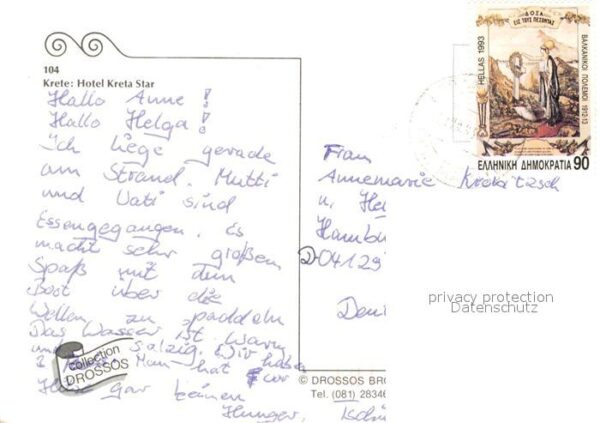 104
Krete: Hotel Kreta Star
Hallo Anne!
Hallo Helga!
Ich liege gerade
am Strand. Mutti
und Vati sind
Essengegangen. Es
macht sehr großen
Spaß mit dem
Boot über die
Wellen zu paddeln
Das Wasser ist warm
und salzig. Wir habe
Man hat vor
gar keinen
Hunger.
collection
DROSSOS
ΔΟΞΑ
ΕΙΣ ΤΟΥΣ ΠΕΣΟΝΤΑΣ
HELLAS 1993
ΒΑΛΚΑΝΙΚΟΙ ΠΟΛΕΜΟΙ 1912-13
ΕΛΛΗΝΙΚΗ ΔΗΜΟΚΡΑΤΙΑ 90
Frau
Annemarie
u. He
Hambu
D-04129
privacy protection
Datenschutz
© DROSSOS BRO
Tel. (081) 28346